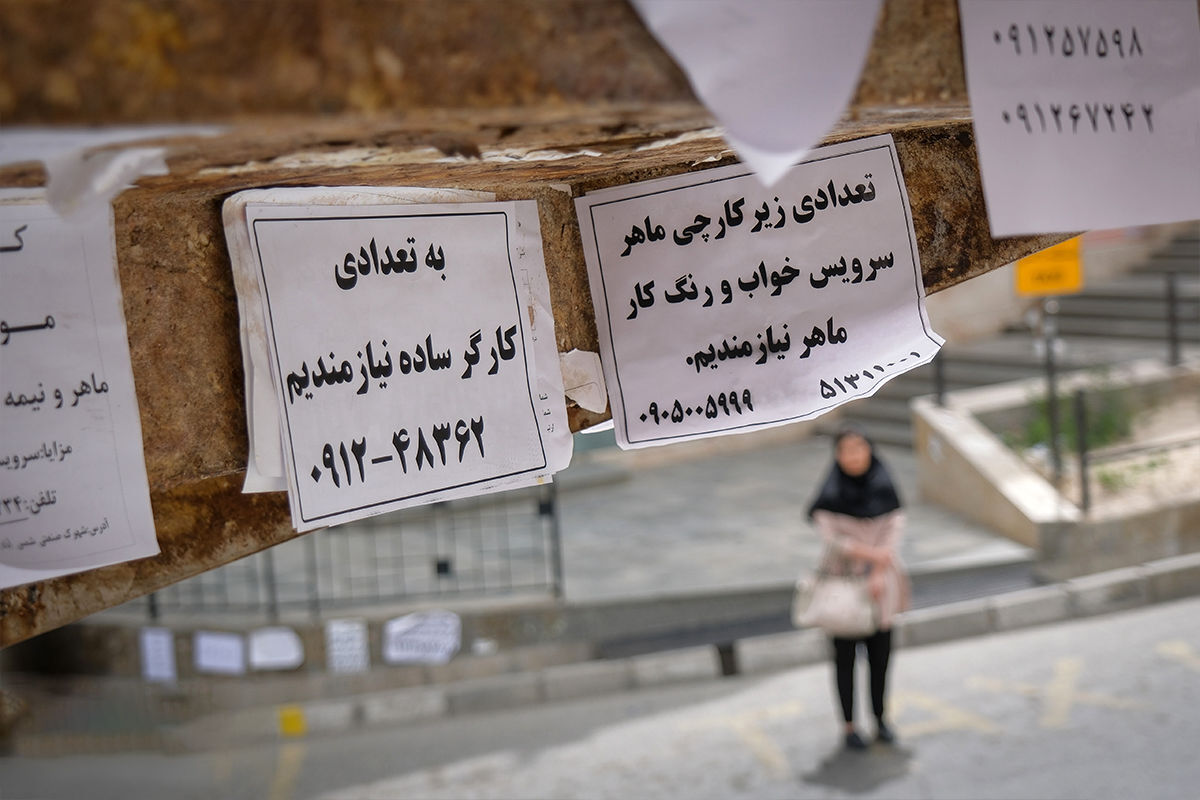 ۰۹۱۲۵۷۵۹۸
۰۹۱۲۶۷۲۴۲
تعدادی زیر کارچی ماهر
سرویس خواب و رنگ کار
ماهر نیازمندیم.
۰۹۰۵۰۰۵۹۹۹
۵۱۳۱۱۰۰۱
به تعدادی
کارگر ساده نیازمندیم
۰۹۱۲-۴۸۳۶۲
ماهر و نیمه
مزایا:سرویس
تلفن:
آدرس:شهرک صنعتی شمس